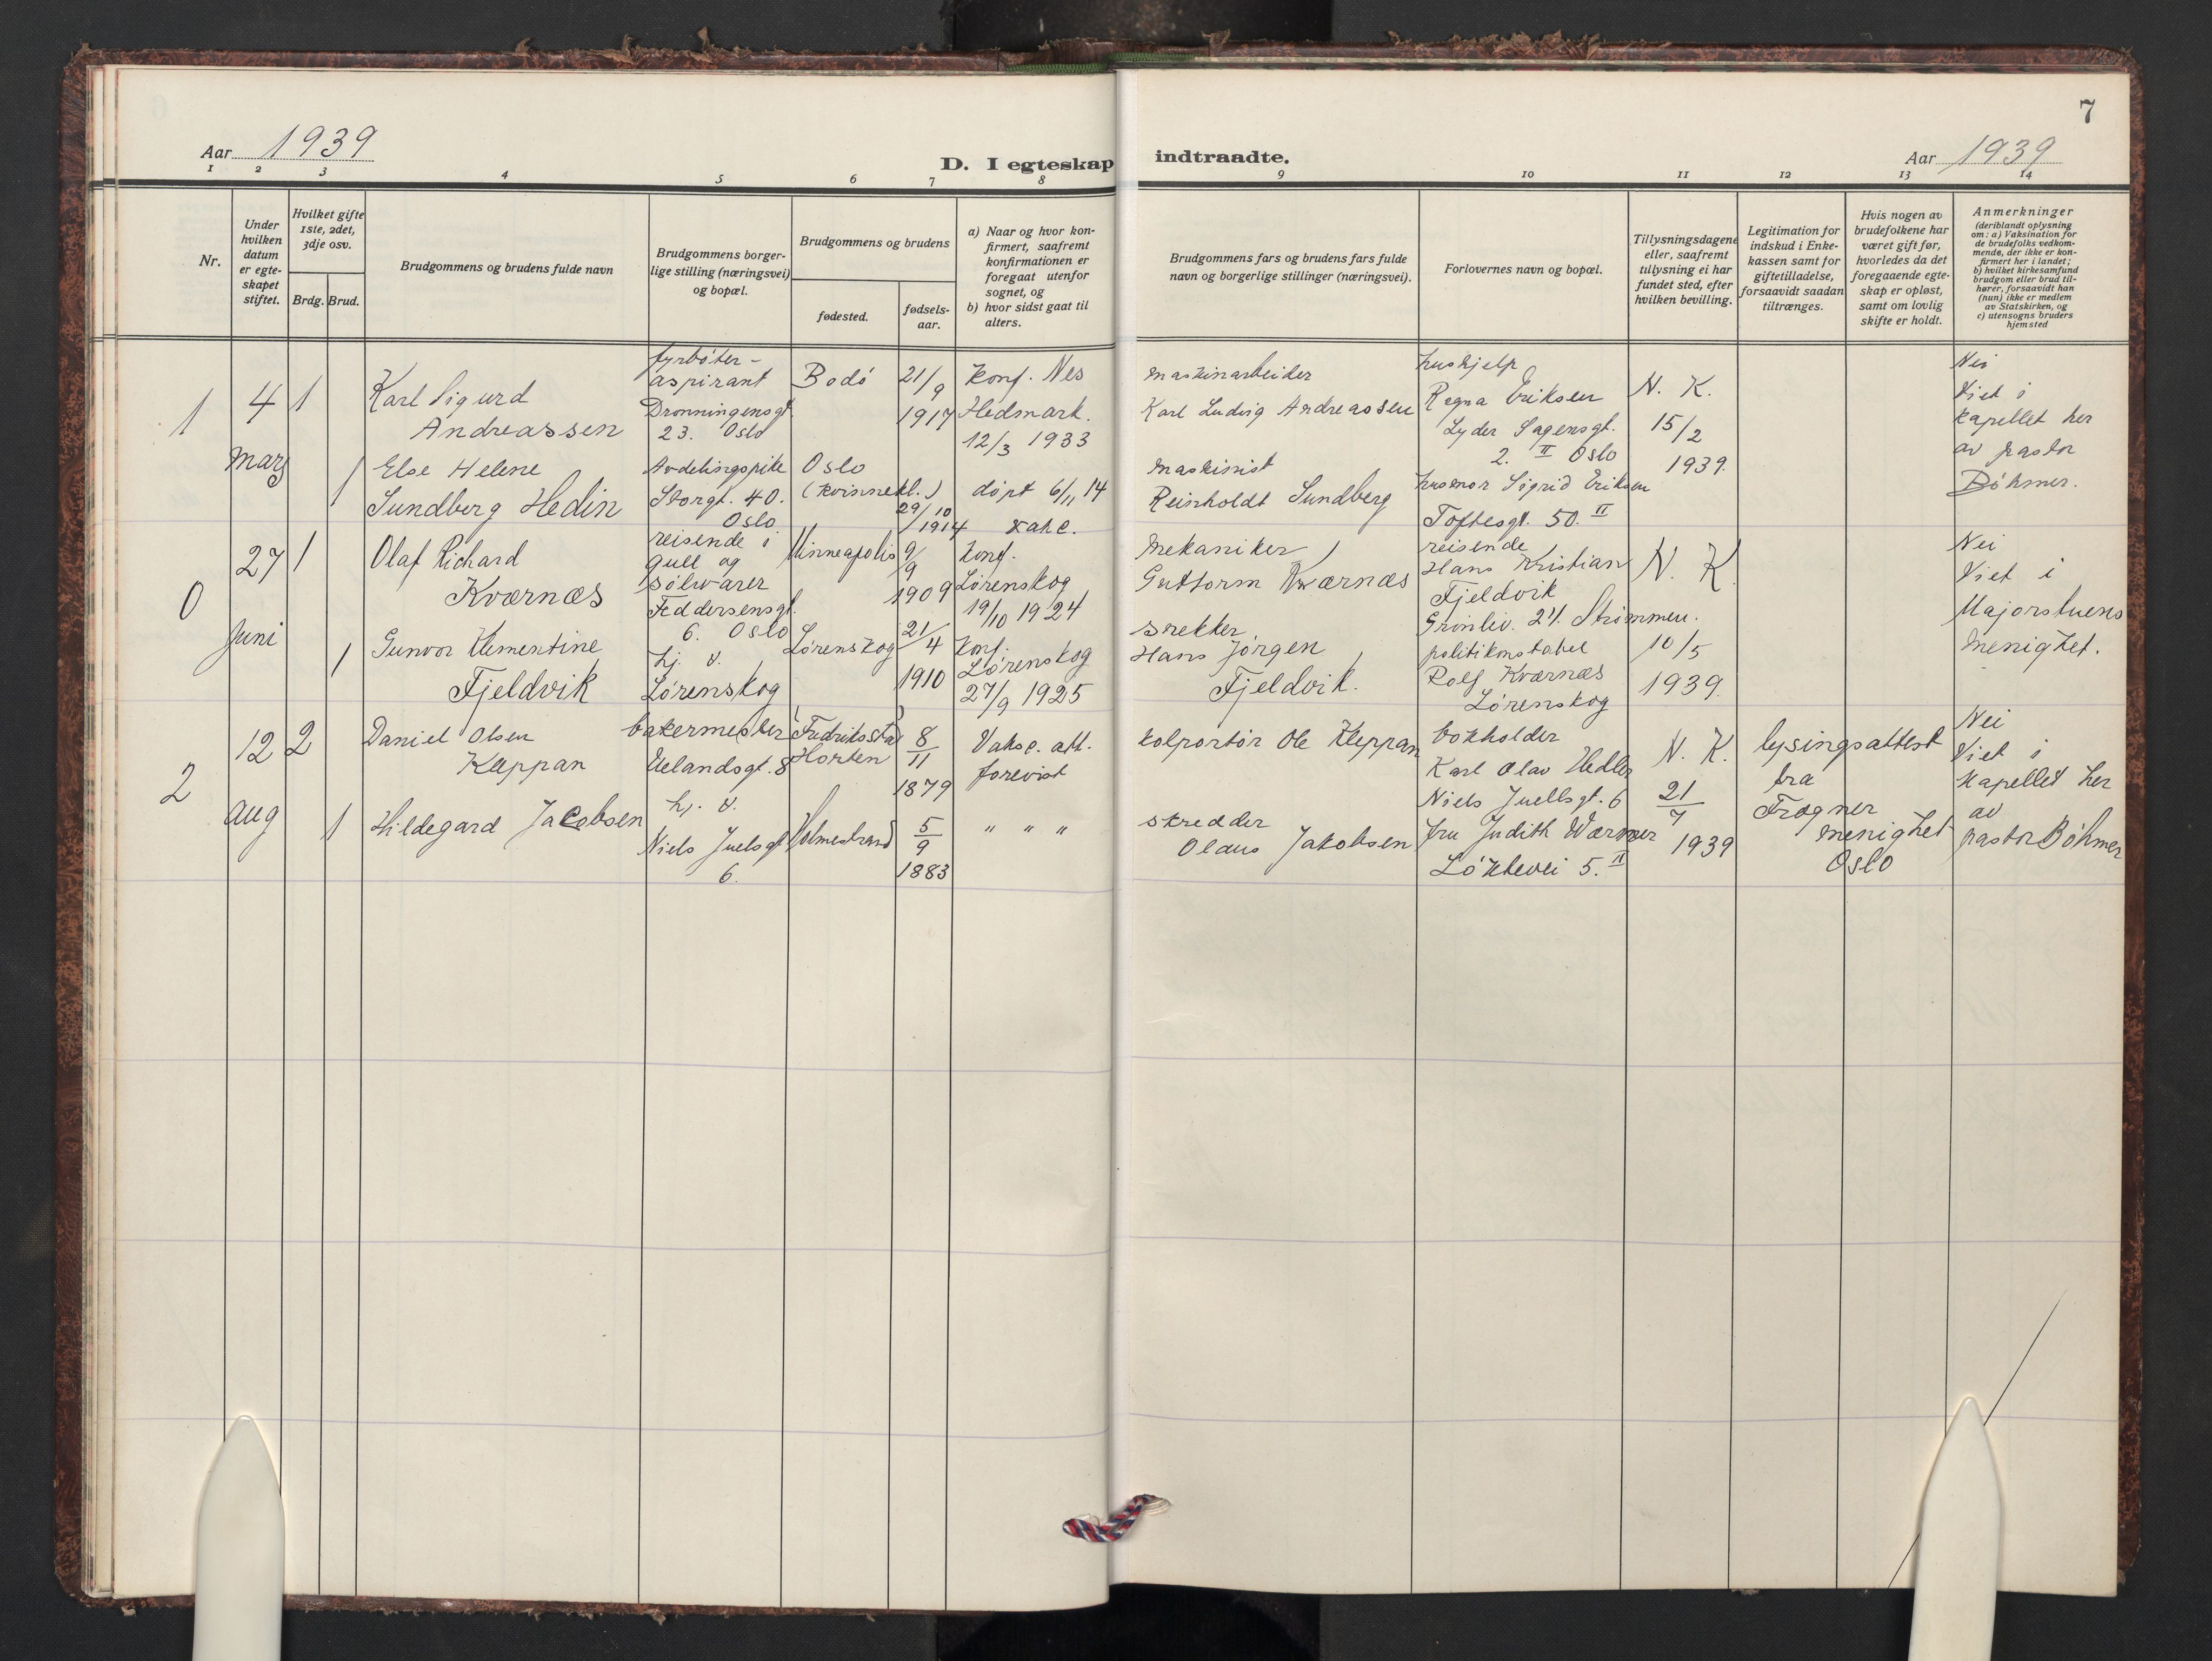 7
Aar 1939
D. I egteskap indtraadte.
Aar 1939
1 2 3 4 5 6 7 8 9 10 11 12 13 14
Nr.
Under
hvilken
datum
er egte-
skapet
stiftet.
Hvilket gifte
1ste, 2det,
3dje osv.
Brdg. Brud.
Brudgommens og brudens fulde navn
Brudgommens borger-
lige stilling (næringsvei)
og bopæl.
Brudgommens og brudens
fødested.
fødsels-
aar.
a) Naar og hvor kon-
firmert, saafremt
konfirmationen er
foregaat utenfor
sognet, og
b) hvor sidst gaat til
alters.
Brudgommens fars og brudens fars fulde
navn og borgerlige stillinger (næringsvei).
Forlovernes navn og bopæl.
Tillysningsdagene
eller, saafremt
tillysning ei har
fundet sted, efter
hvilken bevilling.
Legitimation for
indskud i Enke-
kassen samt for
giftetilladelse,
forsaavidt saadan
tiltrænges.
Hvis nogen av
brudefolkene har
været gift før,
hvorledes da det
foregaaende egte-
skap er opløst,
samt om lovlig
skifte er holdt.
Anmerkninger
(deriblandt oplysning
om: a) Vaksination for
de brudefolks vedkom-
mende, der ikke er kon-
firmert her i landet;
b) hvilket kirkesamfund
brudgom eller brud til-
hører, forsaavidt han
(hun) ikke er medlem
av Statskirken, og
c) utensogns bruders
hjemsted
1
4
mars
1
Karl Sigurd
Andreassen
fyrbøter-
aspirant
Dronningensgt.
23. Oslo
Bodø
21/9
1917
Konf. Nes
Hedmark.
12/3 1933
maskinarbeider
Karl Ludvig Andreassen
hushjelp
Ragna Eriksen
Lyder Sagensgt.
2. II Oslo
N. K.
15/2
1939.
Nei
Viet i
kapellet her
av pastor
Bøhmer.
1
Else Helene
Sundberg Hedin
Avdelingspike
Storgt. 40.
Oslo
Oslo
(Kvinnekl.)
29/10
1914
døpt 6/11 14
vakc.
maskinist
Reinholdt Sundberg
husmor Sigrid Eriksen
Toftesgt. 50. II
0
27
Juni
1
Olaf Richard
Kværnæs
reisende i
gull og
sølvvarer
Feddersensgt.
6. Oslo
Minneapolis
9/9
1909
Konf.
Lørenskog
19/10 1924
Mekaniker
Guttorm Kværnæs
reisende
Hans Kristian
Fjeldvik
Grønliv. 24. Strømmen.
N. K.
10/5
1939.
Nei
Viet i
Majorstuens
menighet.
1
Gunvor Klementine
Fjeldvik
hj. v.
Lørenskog
Lørenskog
21/4
1910
Konf.
Lørenskog
27/9 1925
Hans Jørgen
Fjeldvik.
politikonstabel
Rolf Kværnæs
Lørenskog
2
12
aug
2
Daniel Olsen
Kleppan
bakermester
Uelandsgt. 8
Fredriksstad
Horten
8/11
1879
Vaksc. att.
forevist
kolportør Ole Kleppan
bokholder
Karl Olav Hedler
Niels Juellsgt. 6
N. K.
21/7
1939
lysingsattest
fra
Frogner
menighet
Oslo
Nei
Viet i
kapellet her
av
pastor Bøhmer
1
Hildegard Jacobsen
hj. v.
Niels Juelsgt.
6.
Holmestrand
5/9
1883
" " "
skredder
Olaus Jakobsen
fru Judith Wærmer
Løktevei 5. II